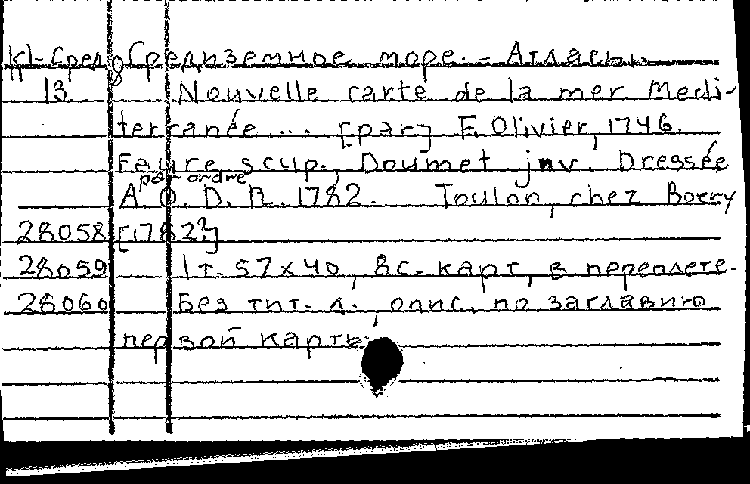 К1-Сред. 8 Средиземное море. - Атласы.
13 Nouvelle carte de la mer Medi-
terranée ... [par] F. Olivier, 1746.
Faure sculp., Doumet jnv. Dressée
par ordre
A. O. D. R. 1782. Toulon, chez Borry
28058 [1782?]
28059 1 т. 57x40, 8с. карт, в переплете.
28060 Без тит. л., опис. по заглавию
первой карты.